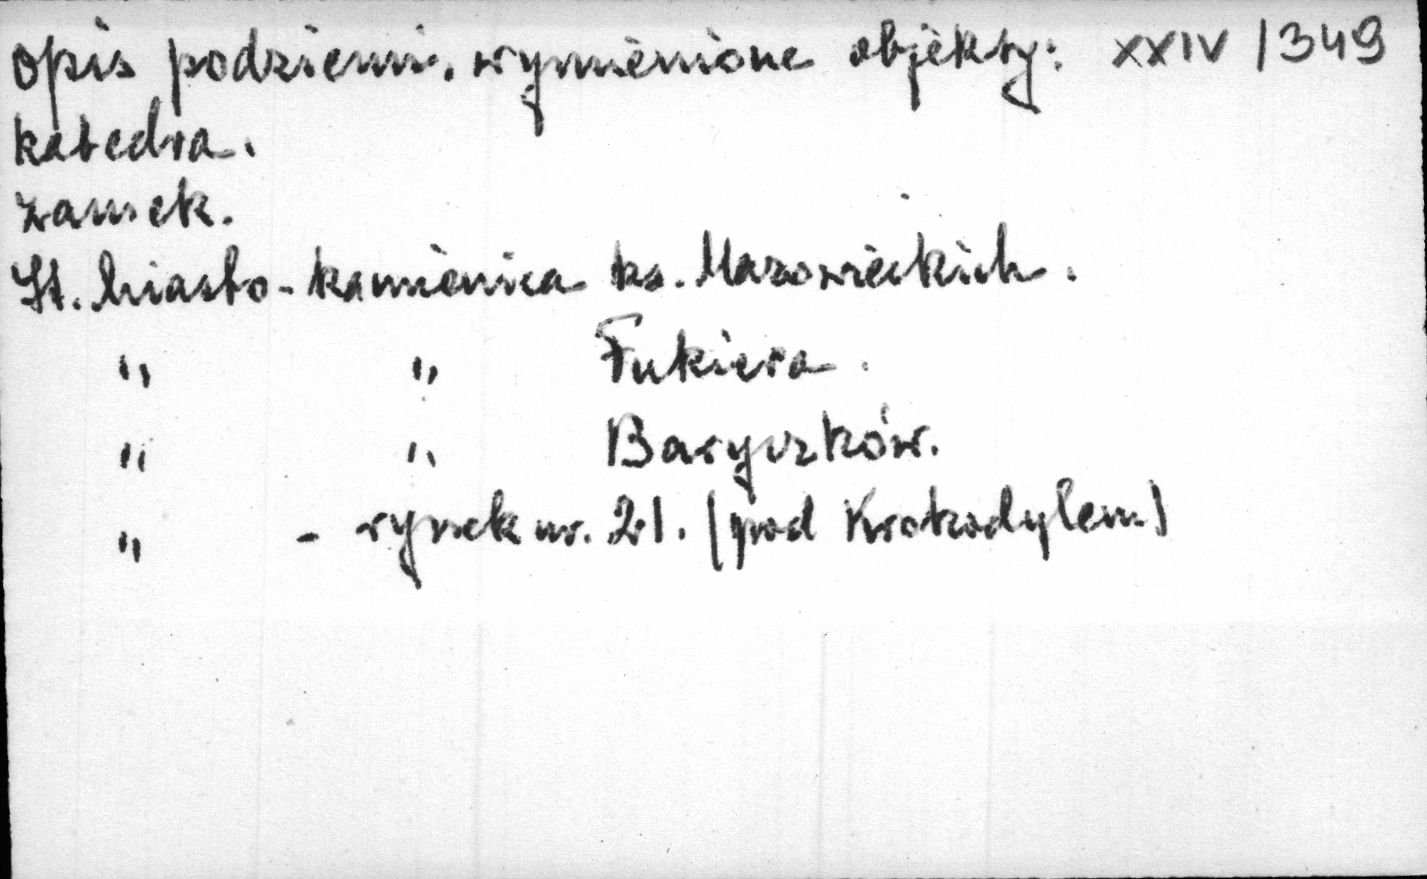 opis podziemi. wymienione objekty: XXIV/349
katedra.
zamek.
St. Miasto - kamienica ks. Mazowieckich.
" " Fukiera.
" " Baryczków.
" - rynek nr. 21. (pod Krokodylem)